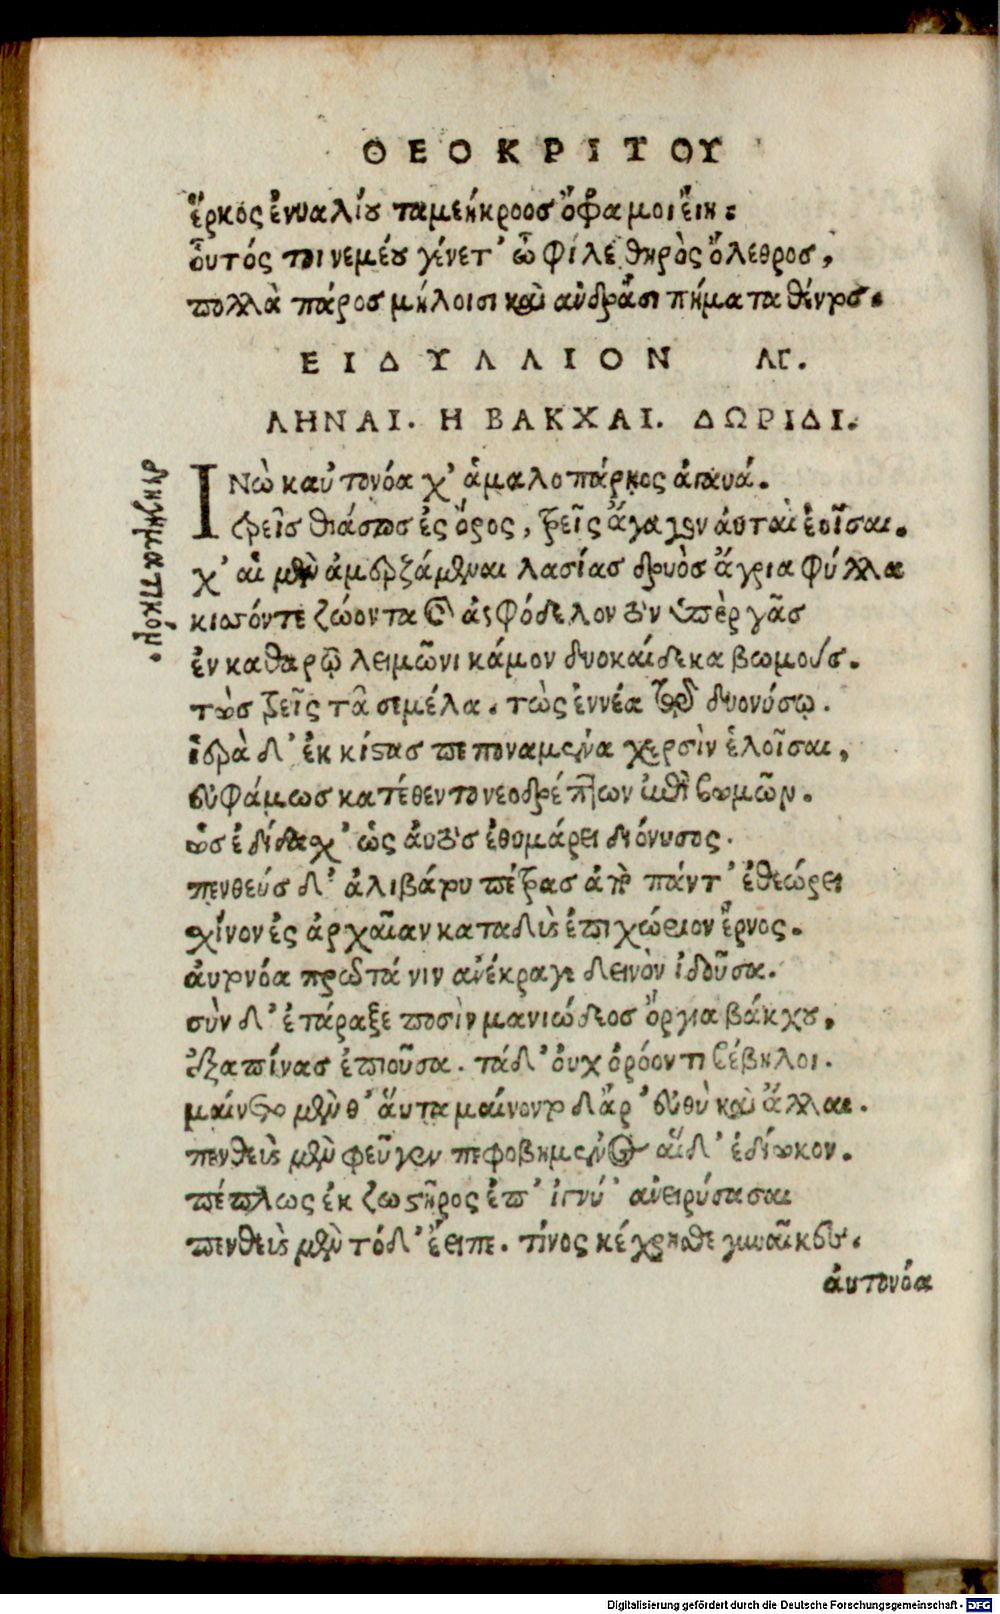 ΘΕΟΚΡΙΤΟΥ
ἕρκος ἐνυαλίου ταμεήκροος ὄφρα μοι εἴη:
οὗτός τοι νεμέου γένετ' ὦ φίλε θηρὸς ὄλεθρος,
πολλὰ πάρος μήλοισι καὶ ἀνδράσι πήματα θέντος.
ΕΙΔΥΛΛΙΟΝ ΛΓ.
ΛΗΝΑΙ. Η ΒΑΚΧΑΙ. ΔΩΡΙΔΙ.
διηγηματικόν.
ΙΝὼ καὐτονόα χ' ἁμαλοπάρῃος ἀγαυά.
τρεῖς θιάσως ἐς ὄρος, τρεῖς ἄγαγον ἀυταὶ ἐοῖσαι.
χ' αἱ μὲν ἀμερξάμεναι λασίας δρυὸς ἄγρια φύλλα
κισσόντε ζώοντα καὶ ἀσφόδελον τὸν ὑπὲρ γᾶς
ἐν καθαρῷ λειμῶνι κάμον δυοκαίδεκα βωμούς.
τὼς τρεῖς τᾶ σεμέλα. τὼς ἐννέα τῷ δυονύσῳ.
ἱερὰ δ' ἐκ κίστας πεποναμένα χερσὶν ἑλοῖσαι,
εὐφάμως κατέθεντο νεοδρέπτων ἐπὶ βωμῶν.
ὡς ἐδίδαχ' ὡς ἀυτὸς ἐθυμάρει διόνυσος.
πενθεύς δ' ἀλιβάτου πέτρας ἀπὸ πάντ' ἐθεώρει
σχίνον ἐς ἀρχαῖαν καταδὺς ἐπιχώριον ἔρνος.
ἀυτονόα πρώτά νιν ἀνέκραγε δεινὸν ἰδοῦσα.
σὺν δ' ἐτάραξε ποσὶν μανιώδεος ὄργια βάκχου,
ἐξαπίνας ἐπιοῦσα. τάδ' οὐχ ὁρόοντι βέβηλοι.
μαίνετο μὲν θ' ἅυτα μαίνοντο δ' ἄρ' εὐθὺ καὶ ἄλλαι.
πενθεὺς μὲν φεῦγεν πεφοβημένος αἵδ' ἐδίωκον.
πέπλως ἐκ ζωστῆρος ἐπ' ἰγνύ' ἀνειρύσασαι
πενθεὺς μὲν τόδ' ἔειπε. τίνος κέχρησθε γυναῖκες.
ἀυτονόα
Digitalisierung gefördert durch die Deutsche Forschungsgemeinschaft - DFG